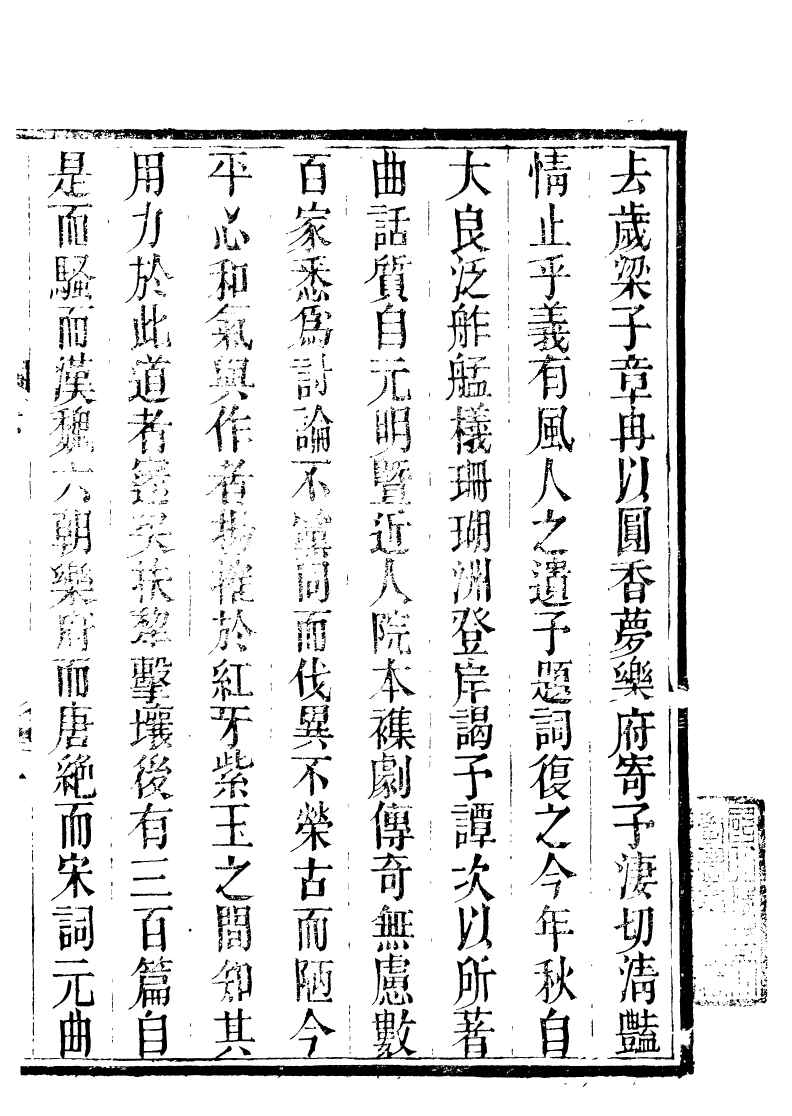 去歲梁子章冉以圓香夢樂府寄予淒切淸豔
情止乎義有風人之遺予題詞復之今年秋自
大良泛舴艋檥珊瑚洲登岸謁予譚次以所著
曲話質自元明曁近人院本襍劇傳奇無慮數
百家悉爲討論不黨同而伐異不榮古而陋今
平心和氣與作者揚搉於紅牙紫玉之間知其
用力於此道者邃矣扶犂擊壤後有三百篇自
是而騷而漢魏六朝樂府而唐絶而宋詞元曲